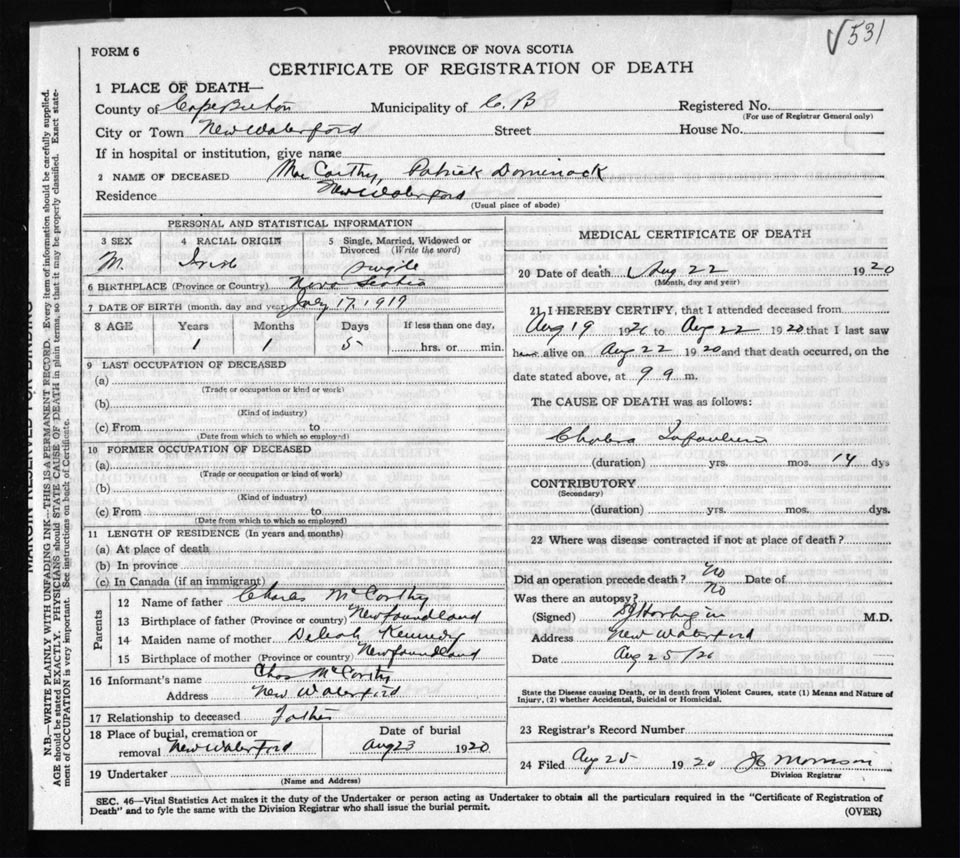 √531
FORM 6
PROVINCE OF NOVA SCOTIA
CERTIFICATE OF REGISTRATION OF DEATH
1 PLACE OF DEATH—
County of Cape Breton Municipality of C. B Registered No.
(For use of Registrar General only)
City or Town New Waterford Street House No.
If in hospital or institution, give name
2 NAME OF DECEASED MacCarthy, Patrick Dominack
Residence New Waterford
(Usual place of abode)
PERSONAL AND STATISTICAL INFORMATION
3 SEX 4 RACIAL ORIGIN 5 Single, Married, Widowed or Divorced (Write the word)
M. Irish Single
6 BIRTHPLACE (Province or Country) Nova Scotia
7 DATE OF BIRTH (month, day and year) July 17, 1919
8 AGE Years Months Days If less than one day,
1 1 5 hrs. or min.
9 LAST OCCUPATION OF DECEASED
(a)
(Trade or occupation or kind or work)
(b)
(Kind of industry)
(c) From to
(Date from which to which so employed)
10 FORMER OCCUPATION OF DECEASED
(a)
(Trade or occupation or kind of work)
(b)
(Kind of industry)
(c) From to
(Date from which to which so employed)
11 LENGTH OF RESIDENCE (In years and months)
(a) At place of death
(b) In province
(c) In Canada (if an immigrant)
Parents
12 Name of father Charles McCarthy
13 Birthplace of father (Province or country) Newfoundland
14 Maiden name of mother Kennedy
15 Birthplace of mother (Province or country) Newfoundland
16 Informant's name Chas McCarthy
Address New Waterford
17 Relationship to deceased Father
18 Place of burial, cremation or Date of burial
removal New Waterford Aug 23 1920
19 Undertaker
(Name and Address)
MEDICAL CERTIFICATE OF DEATH
20 Date of death Aug 22 1920
(Month, day and year)
21 I HEREBY CERTIFY, that I attended deceased from
Aug 19 1920 to Aug 22 1920 that I last saw
alive on Aug 22 1920 and that death occurred, on the
date stated above, at 9 m.
The CAUSE OF DEATH was as follows:
Cholera Infantum
(duration) yrs. mos. 14 dys
CONTRIBUTORY
(Secondary)
(duration) yrs. mos. dys.
22 Where was disease contracted if not at place of death?
Did an operation precede death? No Date of
Was there an autopsy? No
(Signed) M.D.
Address New Waterford
Date Aug 25/20
State the Disease causing Death, or in death from Violent Causes, state (1) Means and Nature of
Injury, (2) whether Accidental, Suicidal or Homicidal.
23 Registrar's Record Number
24 Filed Aug 25 1920 Morrison
Division Registrar
SEC. 46—Vital Statistics Act makes it the duty of the Undertaker or person acting as Undertaker to obtain all the particulars required in the "Certificate of Registration of
Death" and to fyle the same with the Division Registrar who shall issue the burial permit.
(OVER)
MARGIN RESERVED FOR BINDING
N.B.—WRITE PLAINLY WITH UNFADING INK—THIS IS A PERMANENT RECORD. Every item of information should be carefully supplied.
AGE should be stated EXACTLY. PHYSICIANS should STATE CAUSE OF DEATH in plain terms, so that it may be properly classified. Exact state-
ment of OCCUPATION is very important. See instructions on back of Certificate.